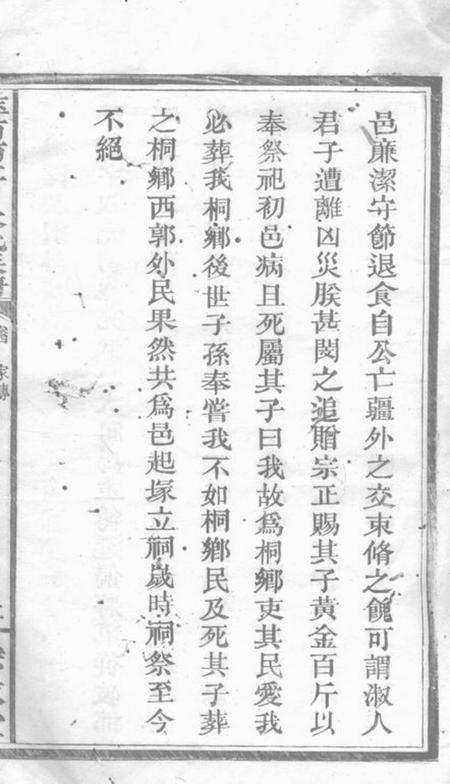 邑廉潔守節退食自公亡疆外之交束脩之餽可謂淑人
君子遭離凶災朕甚閔之追贈宗正賜其子黃金百斤以
奉祭祀初邑病且死屬其子曰我故爲桐鄉吏其民愛我
必葬我桐鄉後世子孫奉嘗我不如桐鄉民及死其子葬
之桐鄉西郭外民果然共爲邑起塚立祠歲時祠祭至今
不絕
家傳